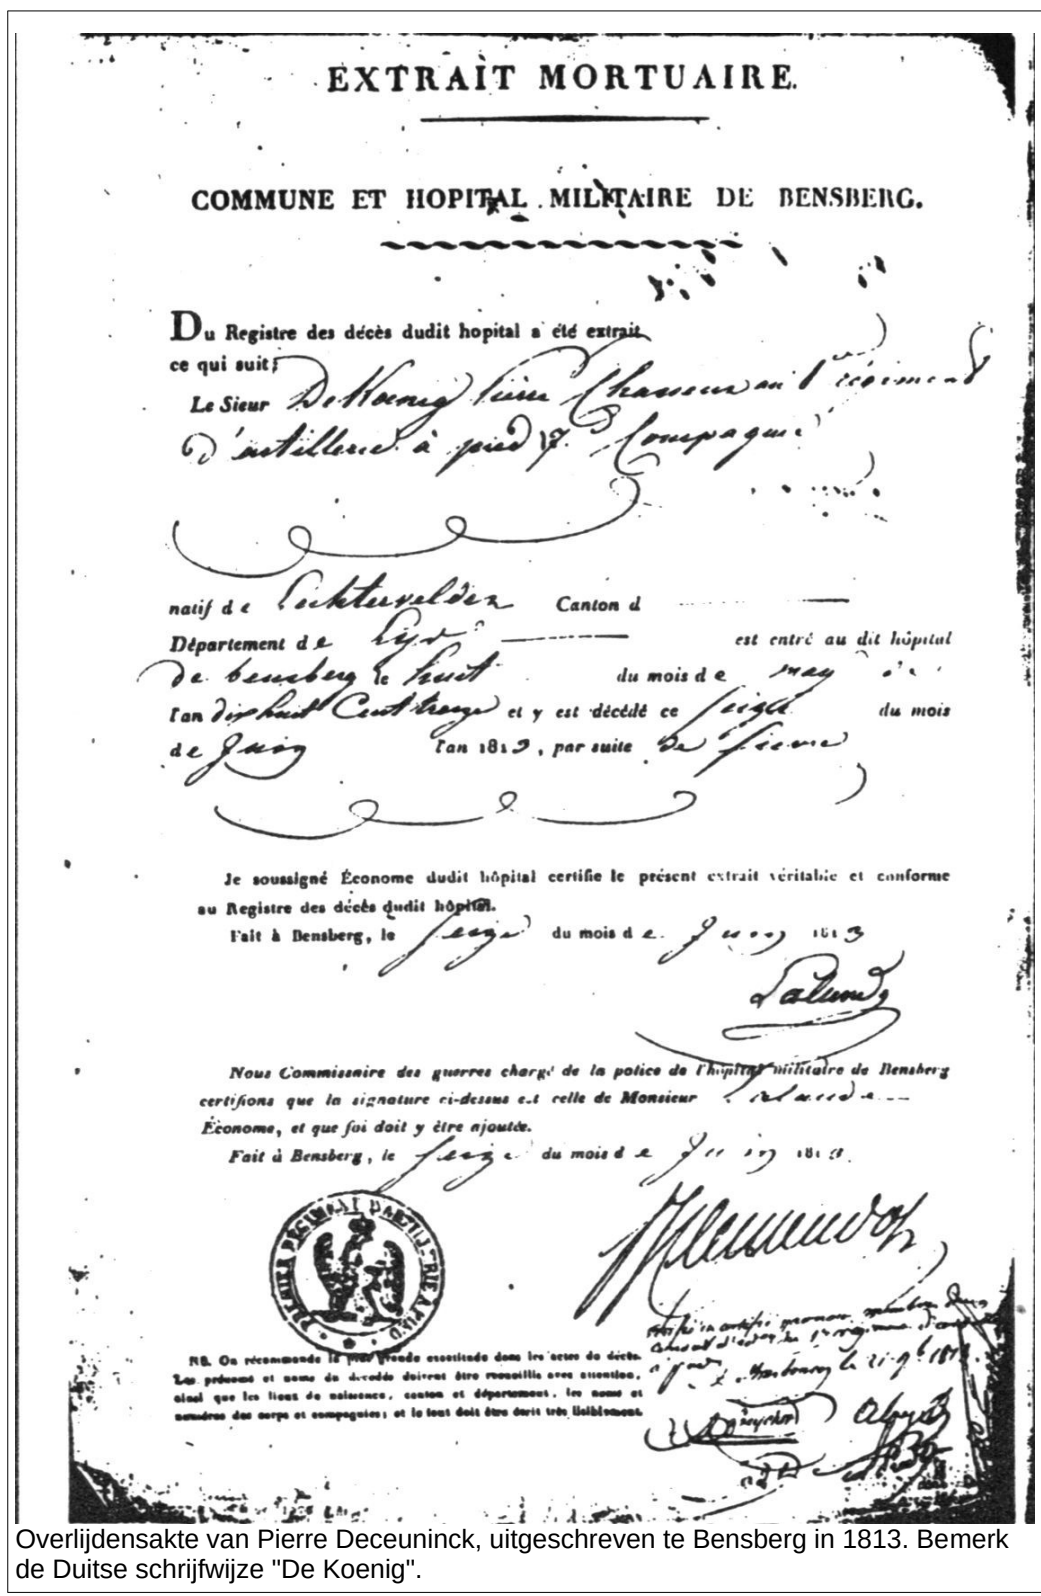 EXTRAIT MORTUAIRE.
COMMUNE ET HOPITAL MILITAIRE DE BENSBERG.
Du Registre des décès dudit hopital a été extrait
ce qui suit;
Le Sieur De Koenig Pierre Chasseur au 1er régiment
d'artillerie à pied 7e Compagnie
natif de Lichtervelden Canton d
Département de Lys est entré au dit hôpital
de bensberg le huit du mois de may
l'an dix huit Cent treize et y est décédé ce seize du mois
de Juin l'an 1813, par suite de fievre
Je soussigné Économe dudit hôpital certifie le présent extrait véritable et conforme
au Registre des décès dudit hôpital.
Fait à Bensberg, le seize du mois de Juin 1813
Lalande
Nous Commissaire des guerres chargé de la police de l'hôpital militaire de Bensberg
certifions que la signature ci-dessus est celle de Monsieur Lalande
Économe, et que foi doit y être ajoutée.
Fait à Bensberg, le seize du mois de Juin 1813.
PREMIER RÉGIMENT D'ARTILLERIE A PIED
NB. On recommande la plus grande exactitude dans les actes de décès.
Les prénoms et noms du décédé doivent être recueillis avec attention,
ainsi que les lieux de naissance, canton et département, les noms et
numéros des corps et compagnies; et le tout doit être écrit très lisiblement.
Overlijdensakte van Pierre Deceuninck, uitgeschreven te Bensberg in 1813. Bemerk
de Duitse schrijfwijze "De Koenig".